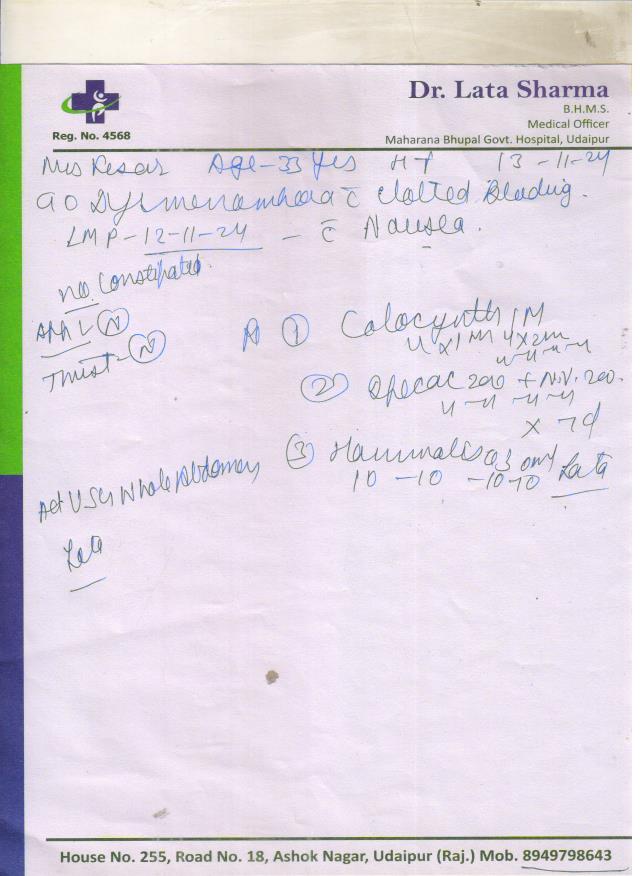 Dr. Lata Sharma
B.H.M.S.
Medical Officer
Maharana Bhupal Govt. Hospital, Udaipur
Reg. No. 4568
Mrs Kesar Age-33 Yrs 13-11-24
Clotted Bleeding.
LMP-12-11-24 - c̄ Nausea.
no constipated.
(N)
Thirst-(N)
① Colocynth 1M
② Ipecac 200 + N.V. 200.
x 7d
③ Hammalis Q 30ml
10 -10 -10-10 Lata
Adv USG Whole Abdomen
Lata
House No. 255, Road No. 18, Ashok Nagar, Udaipur (Raj.) Mob. 8949798643